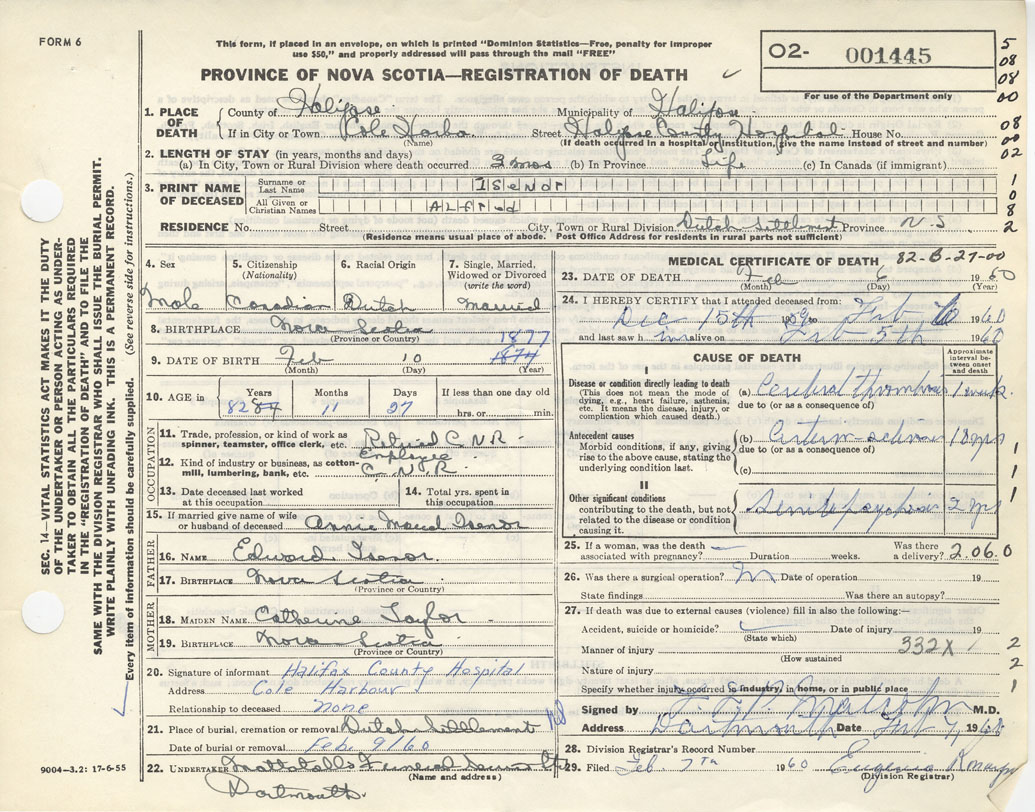 FORM 6
This form, if placed in an envelope, on which is printed "Dominion Statistics—Free, penalty for improper
use $50," and properly addressed will pass through the mail "FREE"
PROVINCE OF NOVA SCOTIA—REGISTRATION OF DEATH
O2- 001445
For use of the Department only
5
08
08
00
08
00
02
1
0
8
2
1. PLACE OF DEATH
County of Halifax Municipality of Halifax
If in City or Town Cole Harbor Street Halifax County Hospital House No.
(Name) (If death occurred in a hospital or institution, give the name instead of street and number)
2. LENGTH OF STAY (in years, months and days)
(a) In City, Town or Rural Division where death occurred 3 mos (b) In Province Life (c) In Canada (if immigrant)
3. PRINT NAME OF DECEASED
Surname or Last Name ISENOr
All Given or Christian Names ALFred
RESIDENCE No. Street City, Town or Rural Division Dutch Settlement Province N.S
(Residence means usual place of abode. Post Office Address for residents in rural parts not sufficient)
4. Sex 5. Citizenship (Nationality) 6. Racial Origin 7. Single, Married, Widowed or Divorced (write the word)
Male Canadian Dutch Married
8. BIRTHPLACE Nova Scotia
(Province or Country)
1877
9. DATE OF BIRTH Feb 10 1874
(Month) (Day) (Year)
10. AGE in Years Months Days If less than one day old
82 11 27 hrs. or min.
OCCUPATION
11. Trade, profession, or kind of work as spinner, teamster, office clerk, etc. Retired C.N.R. Employee
12. Kind of industry or business, as cotton-mill, lumbering, bank, etc. C.N.R.
13. Date deceased last worked at this occupation
14. Total yrs. spent in this occupation
15. If married give name of wife or husband of deceased Annie Isenor
FATHER
16. NAME Edward Isenor
17. BIRTHPLACE Nova Scotia
(Province or Country)
MOTHER
18. MAIDEN NAME Catherine Taylor
19. BIRTHPLACE Nova Scotia
(Province or Country)
20. Signature of informant Halifax County Hospital
Address Cole Harbour
Relationship to deceased none
21. Place of burial, cremation or removal Dutch Settlement
Date of burial or removal Feb 9/60
22. UNDERTAKER Mattatall's Funeral
(Name and address)
Dartmouth
9004-3.2: 17-6-55
MEDICAL CERTIFICATE OF DEATH 82-B-27-00
23. DATE OF DEATH Feb 6 1960
(Month) (Day) (Year)
24. I HEREBY CERTIFY that I attended deceased from:
Dec 15th 1959 to Feb 6 1960
and last saw him alive on Feb 5th 1960
CAUSE OF DEATH
Approximate interval between onset and death
I
Disease or condition directly leading to death
(This does not mean the mode of dying, e.g., heart failure, asthenia, etc. It means the disease, injury, or complication which caused death.)
(a) Cerebral thrombosis 1 week
due to (or as a consequence of)
Antecedent causes
Morbid conditions, if any, giving rise to the above cause, stating the underlying condition last.
(b) 10 yrs
due to (or as a consequence of)
(c)
II
Other significant conditions
contributing to the death, but not related to the disease or condition causing it.
Senile psychosis 2 yrs
1
1
1
25. If a woman, was the death associated with pregnancy? Duration weeks. Was there a delivery? 2.06.0
26. Was there a surgical operation? Date of operation 19
State findings Was there an autopsy?
27. If death was due to external causes (violence) fill in also the following:—
Accident, suicide or homicide? Date of injury 19
(State which)
Manner of injury 332X 2
(How sustained)
Nature of injury 2
Specify whether injury occurred in industry, in home, or in public place 1
Signed by M.D.
Address Dartmouth Date Feb 7, 1960
28. Division Registrar's Record Number
29. Filed Feb. 7th 1960
(Division Registrar)
SEC. 14—VITAL STATISTICS ACT MAKES IT THE DUTY
OF THE UNDERTAKER OR PERSON ACTING AS UNDER-
TAKER TO OBTAIN ALL THE PARTICULARS REQUIRED
IN THE "REGISTRATION OF DEATH" AND TO FILE THE
SAME WITH THE DIVISION REGISTRAR WHO SHALL ISSUE THE BURIAL PERMIT.
WRITE PLAINLY WITH UNFADING INK. THIS IS A PERMANENT RECORD.
Every item of information should be carefully supplied. (See reverse side for instructions.)